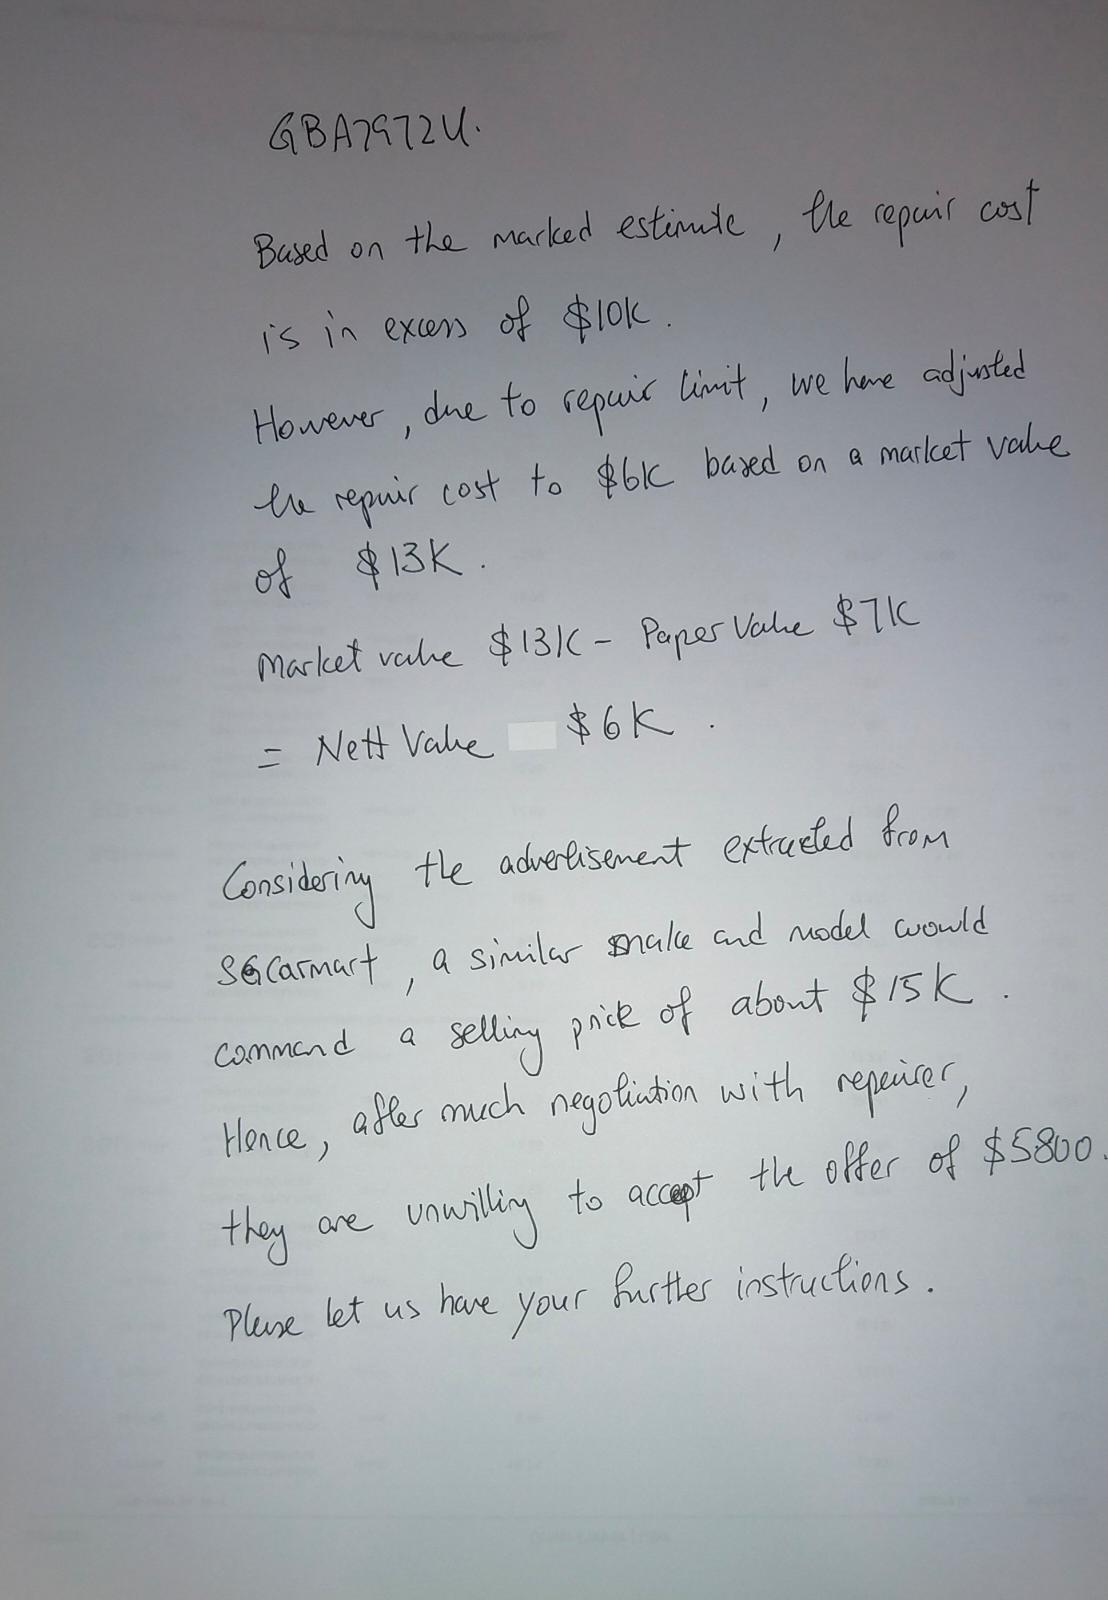 GBA7972U.
Based on the marked estimate, the repair cost
is in excess of $10K.
However, due to repair limit, we have adjusted
the repair cost to $6K based on a market value
of $13K.
Market value $13K - Paper Value $7K
= Nett Value $6K.
Considering the advertisement extracted from
SGCarmart, a similar make and model would
command a selling price of about $15K.
Hence, after much negotiation with repairer,
they are unwilling to accept the offer of $5800.
Please let us have your further instructions.